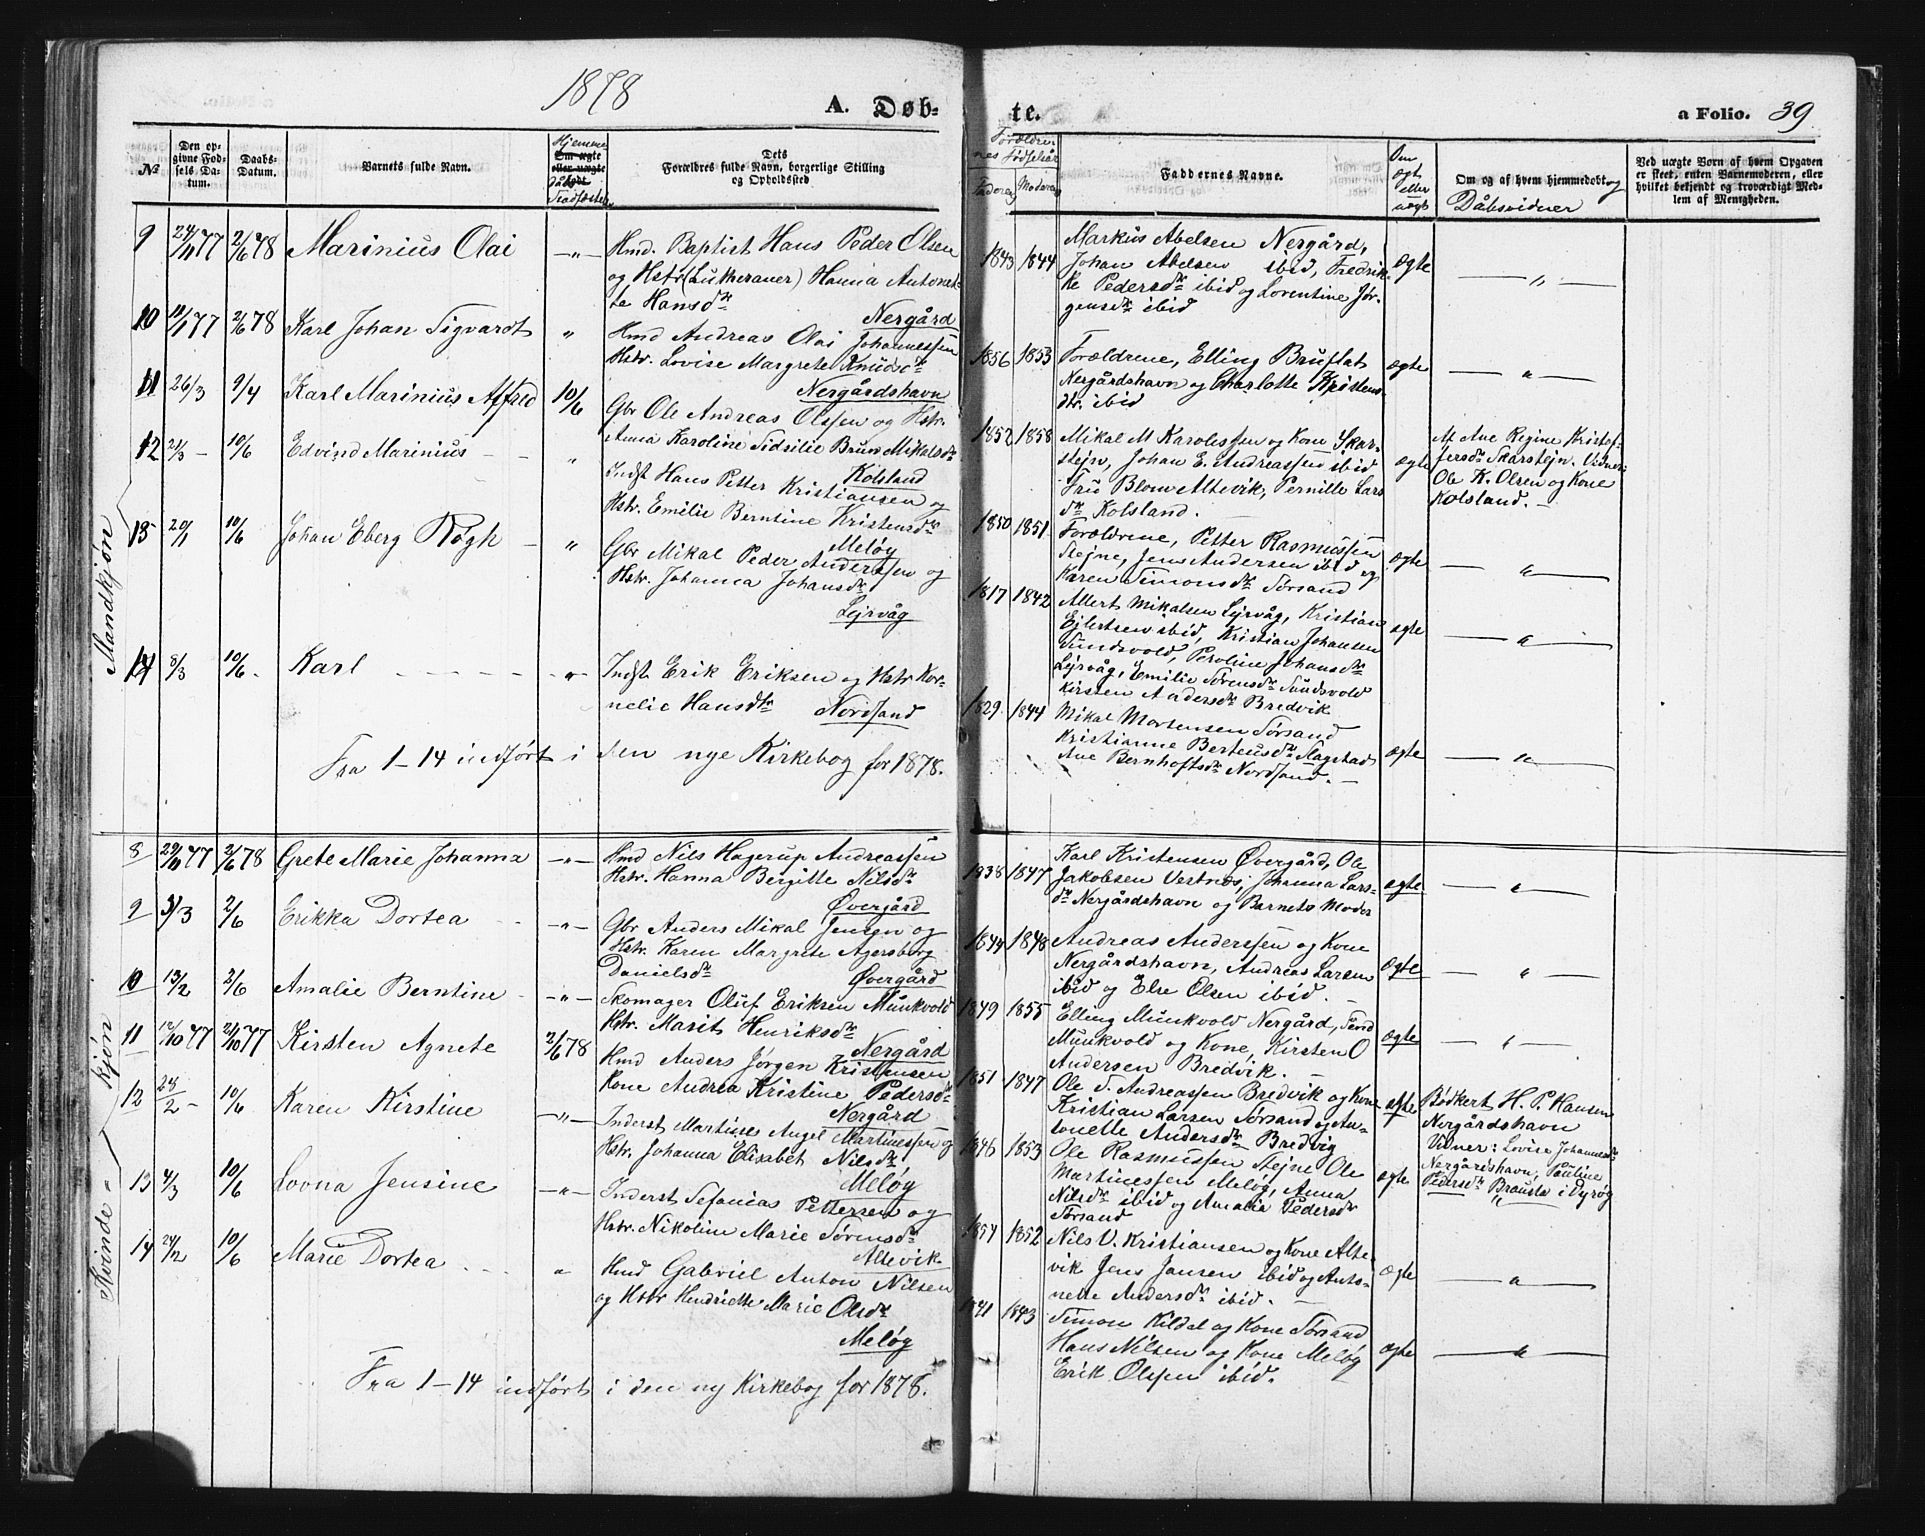 1878
A. Døb-
te.
a Folio. 39
№
Den op-
givne Fød-
sels Da-
tum.
Daabs-
Datum.
Barnets fulde Navn.
Hjemme
Om ægte
eller uægte
født.
dåb
Stadfæstelse
Dets
Forældres fulde Navn, borgerlige Stilling
og Opholdssted
Forældre-
nes Fødselsår
Faderens
Moderens
Faddernes Navne.
Om
ægte
eller
uægte
Om og af hvem hjemmedøbt og
Dåbsvidner
Ved uægte Børn af hvem Opgaven
er skeet, enten Barnemoderen, eller
hvilket bekjendt og troværdigt Med-
lem af Menigheden.
Mandkjøn
9 24/11 77 2/6 78 Marinius Olai —„— Hmd. Baptist Hans Peder Olsen
og Hstr (Lutheraner) Hanna Antonet-
te Hansdtr
Nergård
1843 1844 Markus Abelsen Nergård,
Johan Abelsen ibid, Fredrik-
ke Pedersdtr ibid og Lorentine Jør-
gensdtr ibid
ægte —„—
10 10/1 77 2/6 78 Karl Johan Sigvardt „ Hmd Andreas Olai Johannessen
Hstr. Lovise Margrete Knudsdtr
Nergårdshavn
1856 1853 Forældrene, Elling Bruflat
Nergårdshavn og Charlotte Kristens-
dtr. ibid
ægte —„—
11 26/3 9/4 Karl Marinius Alfred 10/6 Gbr Ole Andreas Olsen og Hstr.
Anna Karoline Sidsilie Brun Mikalsdtr
Kolsland
1852 1858 Mikal M Karolessen og Kone Skar-
stejn, Johan E. Andreassen ibid
Fru Blom Altevik, Pernille Lars
dtr Kolsland.
ægte
Af Ane Regine Kristof-
fersdtr Skarstejn. Vidner:
Ole K. Olsen og Kone
Kolsland.
12 21/3 — 10/6 Edvind Marinius — — „ Indst Hans Petter Kristiansen og
Hstr. Emilie Berntine Kristensdtr
Meløy
1850 1851 Forældrene, Petter Rasmussen
Stejne, Jens Andersen ibid og
Karen Simonsdtr Sørsand
ægte —„—
13 20/1 10/6 Johan Eberg Røgh — „ Gbr Mikal Peder Anderssen og
Hstr. Johanna Johansdtr
Lejrvåg
1817 1842 Albert Mikalsen Lejrvåg, Kristian
Ejlertsen ibid, Kristian Johansen
Sundsvold, Peroline Johansdtr
Lejrvåg, Emilie Sørensdtr Sundsvold
Kirsten Andersdtr Bredvik
ægte —„—
14 8/3 10/6 Karl — — — — —„— Indst Erik Eriksen og Hstr Kor-
nelie Hansdtr Nordsand
1829 1844 Mikal Mortensen Sørsand
Kristianne Berteusdtr Slagstad
Ane Bernhoftsdtr Nordsand.
ægte —„—
Fra 1–14 indført i den nye Kirkebog for 1878.
Kvinde-kjøn
8 29/11 77 2/6 78 Grete Marie Johanna —„— Hmd Nils Hagerup Andreassen
Hstr. Hanna Bergitte Nilsdtr
Øvergård
1838 1847 Karl Kristensen Øvergård, Ole
Jakobsen Vestnes, Johanna Lars-
dtr Nergårdshavn og Barnets Moder
ægte —„—
9 3/3 2/6 Erikka Dortea —„— Gbr Anders Mikal Jensen og
Hstr. Karen Margrete Agersborg
Danielsdtr Øvergård
1844 1848 Andreas Anderssen og Kone
Nergårdshavn, Andreas Larsen
ibid og Else Olsen ibid.
ægte —„—
10 13/2 2/6 Amalie Berntine —„— Skomager Oluf Eriksen Munkvold
Hstr. Marit Henriksdtr
Nergård
1849 1855 Elling Munkvold Nergård, Send
Munkvold og Kone, Kirsten O
Andersen Bredvik.
ægte —„—
11 12/10 77 21/10 77 Kirsten Agnete 2/6 78 Hmd Anders Jörgen Kristensen
Kone Andrea Kristine Pedersdtr
Nergård
1851 1847 Ole S. Andreassen Bredvik og Kone
Kristian Larsen Sørsand og An-
tonette Andersdtr Bredvig
ægte
Bødkert H. P. Hansen
Nergårdshavn
Vidner: Lovise Johannesdtr
Nergårdshavn, Pauline
Pedersdtr Brausta i Dyrøy
12 28/2 — 10/6 Karen Kirstine —„— Inderst Martines Angel Martinessen og
Hstr. Johanna Elisabet Nilsdtr
Meløy
1846 1853 Ole Rasmussen Stejne Ole
Martinessen Meløy, Anna
Nilsdtr ibid og Amalia Pedersdtr
Sørsand
ægte „
13 4/3 10/6 Lovna Jensine —„— Inderst Sefanias Pettersen og
Hstr. Nikoline Marie Sørensdtr
Altevik
1854 1852 Nils V. Kristiansen og Kone Alte-
vik Jens Jansen ibid og Anto-
nette Andersdtr ibid.
ægte —„—
14 24/2 10/6 Marie Dortea „ Hmd Gabriel Anton Nilsen
og Hstr Hendriette Marie Olsdtr
Meløy
1841 1843 Simon Kildal og Kone Sørsand
Hans Nilsen og Kone Meløy
Erik Olsen ibid.
ægte —„—
Fra 1–14 indført i den ny Kirkebog for 1878.